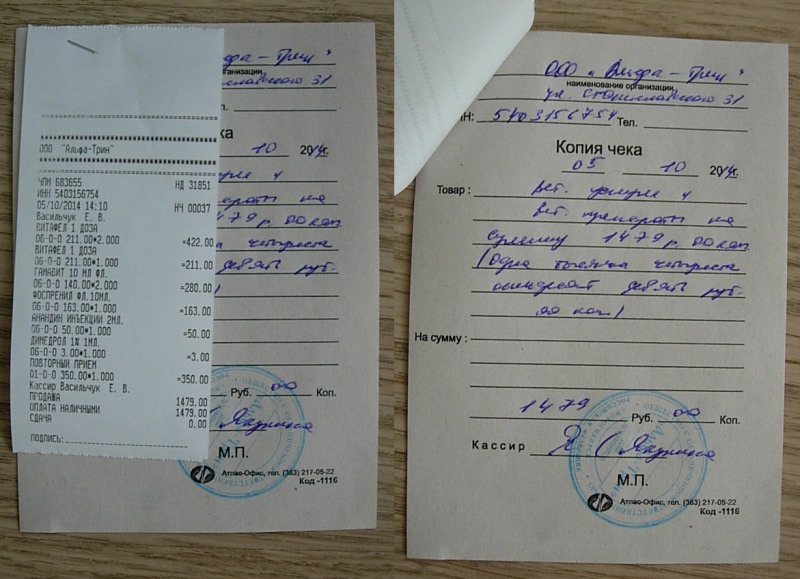 ООО "Альфа-Трин"
ЧПМ 683655 НД 31851
ИНН 5403156754
05/10/2014 14:10 НЧ 00037
Васильчук Е. В.
ВИТАФЕЛ 1 ДОЗА
06-0-0 211.00*2.000 =422.00
ВИТАФЕЛ 1 ДОЗА
06-0-0 211.00*1.000 =211.00
ГАМАВИТ 10 МЛ ФЛ.
06-0-0 140.00*2.000 =280.00
ФОСПРЕНИЛ ФЛ.10МЛ.
06-0-0 163.00*1.000 =163.00
АНАНДИН ИНЪЕКЦИИ 2МЛ.
06-0-0 50.00*1.000 =50.00
ДИМЕДРОЛ 1% 1МЛ.
06-0-0 3.00*1.000 =3.00
ПОВТОРНЫЙ ПРИЕМ
01-0-0 350.00*1.000 =350.00
Кассир Васильчук Е. В.
ПРОДАЖА 1479.00
ОПЛАТА НАЛИЧНЫМИ 1479.00
СДАЧА 0.00
ПОДПИСЬ:
10 2014г.
Руб. 00 Коп.
Якунина
М.П.
Атлас-Офис, тел. (383) 217-05-22
Код -1116
ООО "Альфа-Трин"
наименование организации
ул. Станиславского 31
ИНН: 5403156754 Тел.
Копия чека
05 10 2014г.
Товар : вет. услуги и
вет. препараты на
сумму 1479 р. 00 коп
(одна тысяча четыреста
семьдесят девять руб.
00 коп.)
На сумму :
1479 Руб. 00 Коп.
Кассир Якунина
М.П.
Атлас-Офис, тел. (383) 217-05-22
Код -1116